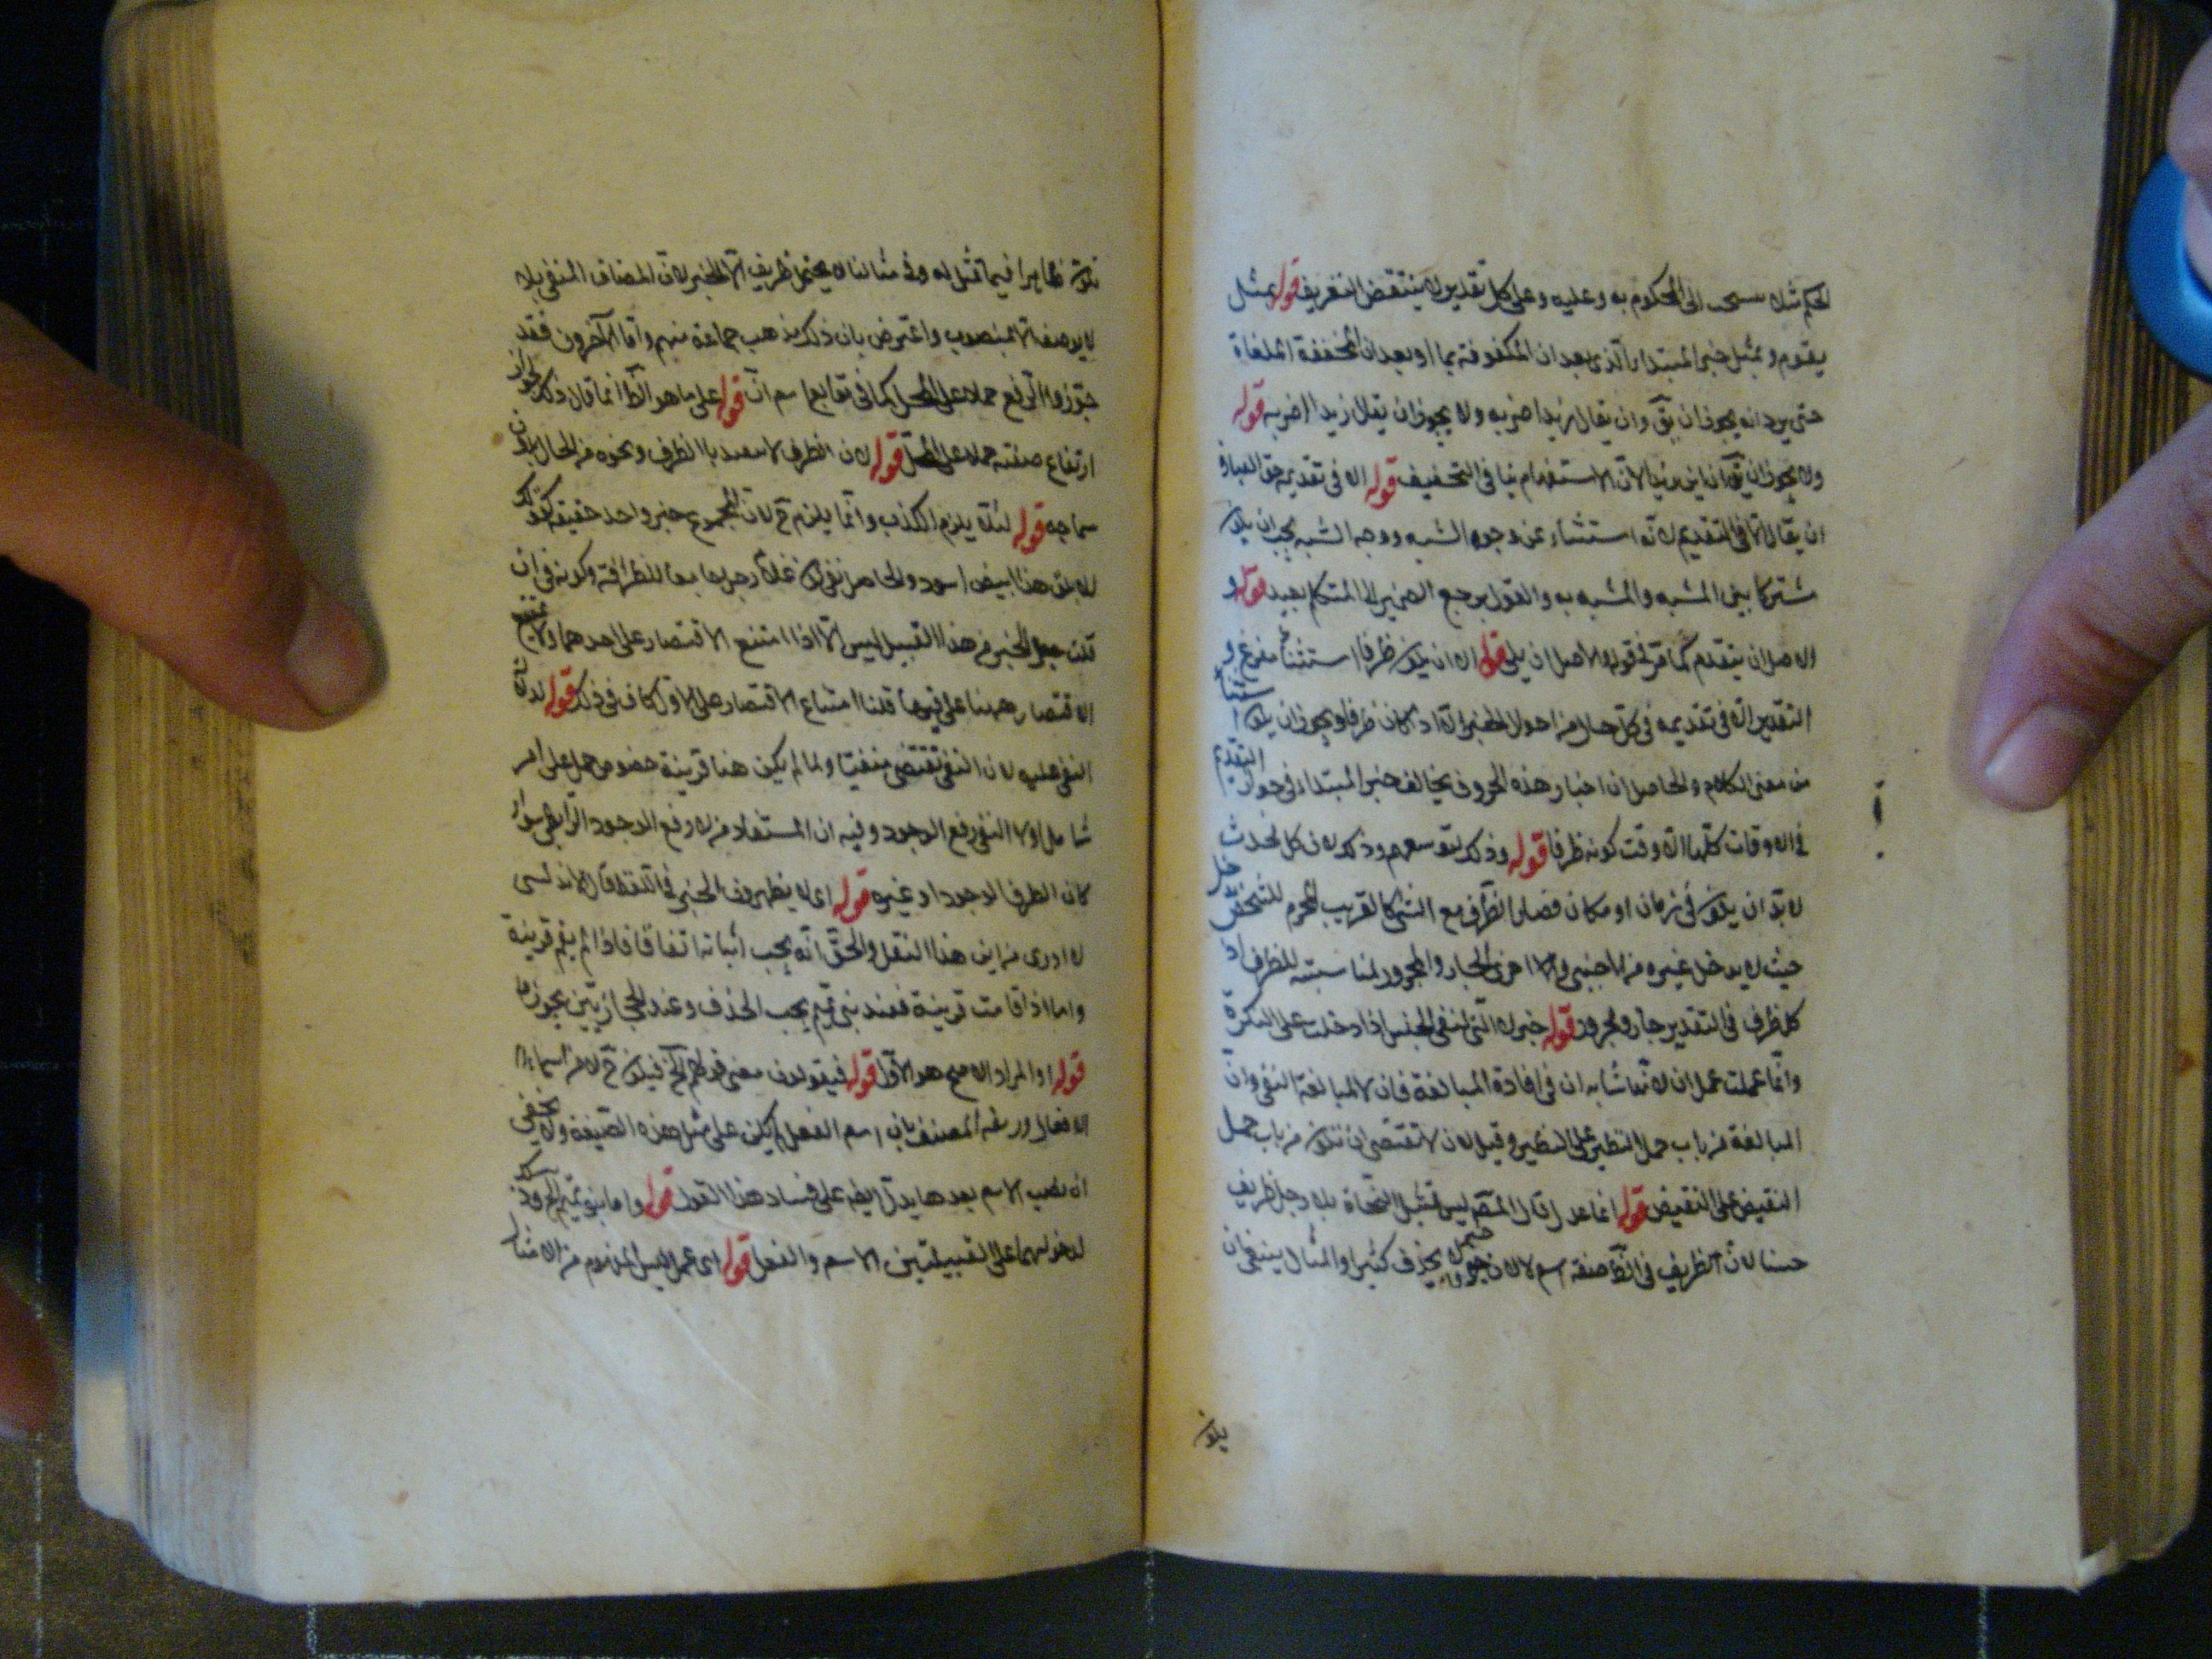 الحكم شلا يستحب الى المحكوم به وعليه وعلى كل تقدير لا ينتقض التعريف قوله بمثل
يقوم وبمثل خبر المبتداء الذى بعد ان المكفوفة بما او بعد ان المخففة الملغاة
حتى يرد انه يجوز ان يق وان يقال زيد اضربه ولا يجوز ان يقال زيدا اضربه قوله
ولا يجوز ان يق ان اين زيدا لان الاستفهام ينافى التحقيق قوله الا فى تقديمه حق العبارة
ان يقال الا فى التقديم لانه استثناء عن وجوه الشبه ووجه الشبه يجب ان يكون
مشتركا بين المشبه والمشبه به والقول برجع الضمير الى المتكلم بعيد قوله و
الاصل ان يتقدم كما مر فى قوله والاصل ان يلى قوله الا ان يكون ظرفا استثناء مفرغ و
التقدير الا فى تقديمه فى كل حال من احوال الخبر الا اذ كان ظرفا ويجوز ان يكون استثناء
من معنى الكلام والحاصل ان اخبار هذه الحروف يخالف خبر المبتداء فى جواز التقديم
فى الاوقات كلها الا وقت كونه ظرفا قوله وذلك لتوسعهم وذلك لان كل محدث
لا بد ان يكون فى زمان او مكان فصار الظرف مع الشئ كالقريب المحرم للشخص يدخل
حيث لا يدخل غيره من الاجنبى واجرى الجار والمجرور لمناسبته للظرف اذ
كل ظرف فى التقدير جار ومجرور قوله خبر لا التى لنفى الجنس اذا دخلت على النكرة
وانما عملت عمل ان لانها شابه ان فى افادة المبالغة فان لا لمبالغة النفى وان
المبالغة من باب حمل النظير على النظير وقيل لان لا تقتضى ان تكون من باب حمل
النقيض على النقيض قوله انما عدل قال المصم ليس تمثيل النحاة بلا رجل ظريف
حسنا لان الظريف فى الظ صفة اسم لا لان خبره يحذف كثيرا والمثال ينبغى ان
يكون
يكون ظاهرا فيما تمثل له وفى مثالنا لا يحتمل ظريف الا الخبر لان المضاف المنفى بلا
لا يوصف الا بمنصوب واعترض بان ذلك مذهب جماعة منهم واما الآخرون فقد
جوزوا الرفع حملا على المحل كما فى توابع اسم ان قوله على ما هو الظ انما قال ذلك لجواز
ارتفاع صفته حملا على المحل قوله لان الظرف لا يتقيد بالظرف ونحوه من الحال
سماجه قوله لئلا يلزم الكذب وانما يلزم ح لان المجموع خبر واحد حقيقة كقولك
للابلق هذا ابيض اسود والحاصل نفى كون غلام رجل جامعا للظرافة وكونه فى ان
قلت جعل الخبر من هذا القبيل ليس الا اذا امتنع الاقتصار على احدهما ولا يمتنع
الاقتصار ههنا على فيها قلنا امتناع الاقتصار على الاول كاف فى ذلك قوله لدلالة
النفى عليه لان النفى تقتضى منفيا ولما لم يكن هنا قرينة خصوص حمل على امر
شامل اولا النفى رفع الوجود وفيه ان المستفاد من لا رفع الوجود الرابطى سواء
كان الطرف الوجود او غيره قوله اى لا يظهرون الخبر فى اللفظ قال الاندلسى
لا ادرى من اين هذا النقل والحق انه يجب اثباته اتفاقا فاذا لم يقم قرينة
واما اذا قامت قرينة فعند بنى تميم يجب الحذف وعند الحجازيين يجوز
قوله او المراد الاصح هو الاول قوله فيقولون معنى قولهم الخ فيكون ح لا من اسماء
الافعال ورده المصنف بان اسم الفعل لم يكن على مثل هذه الصيغة ولا يخفى
ان نصب الاسم بعدها يدل ايضا على فساد هذا القول قوله واما بنو تميم
لدخولهما على القبيلتين الاسم والفعل قوله اى عمل ليس المفهوم من